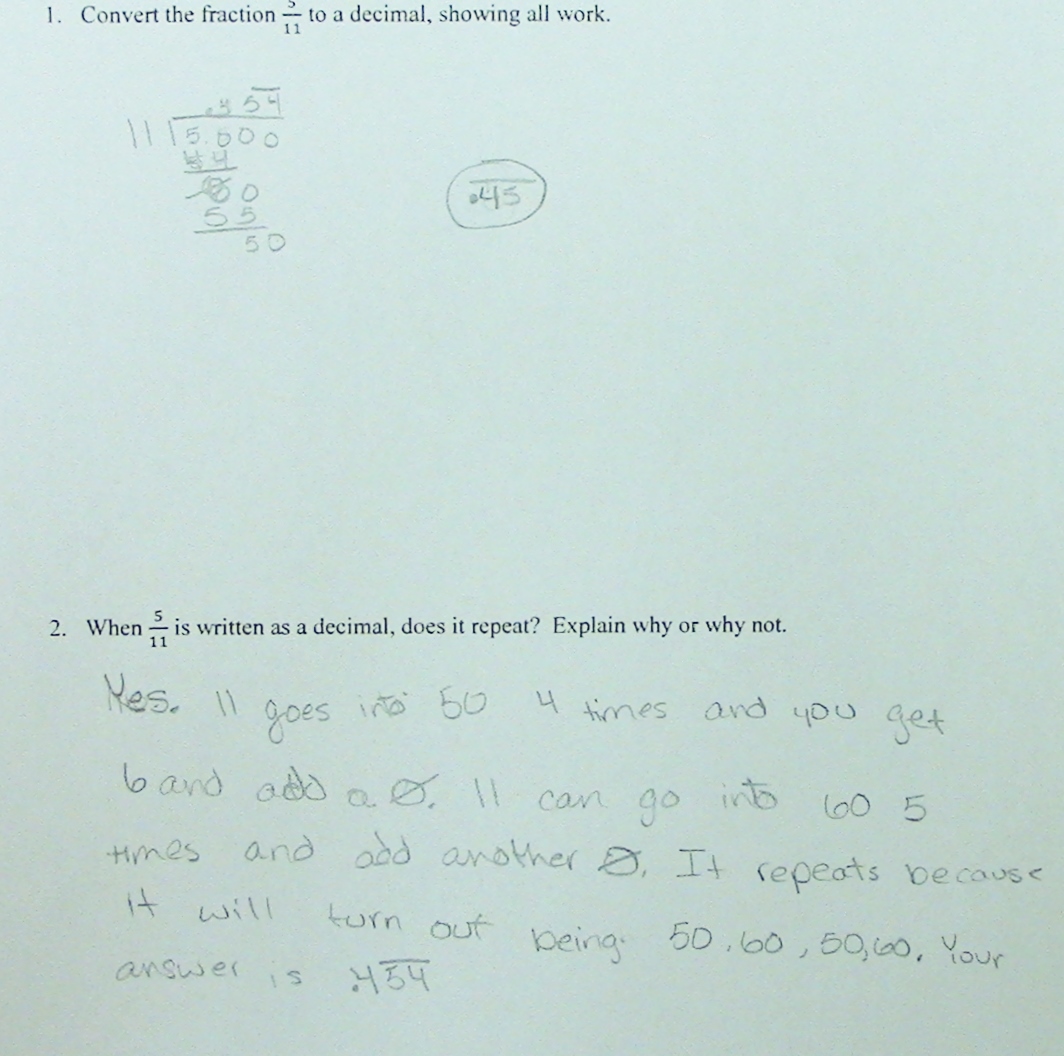 1. Convert the fraction 5/11 to a decimal, showing all work.
.4 5̅4̅
11 5.000
44
60
55
50
.4̅5̅
2. When 5/11 is written as a decimal, does it repeat? Explain why or why not.
Yes. 11 goes into 50 4 times and you get
6 and add a 0. 11 can go into 60 5
times and add another 0. It repeats because
it will turn out being 50, 60, 50, 60. Your
answer is .45̅4̅